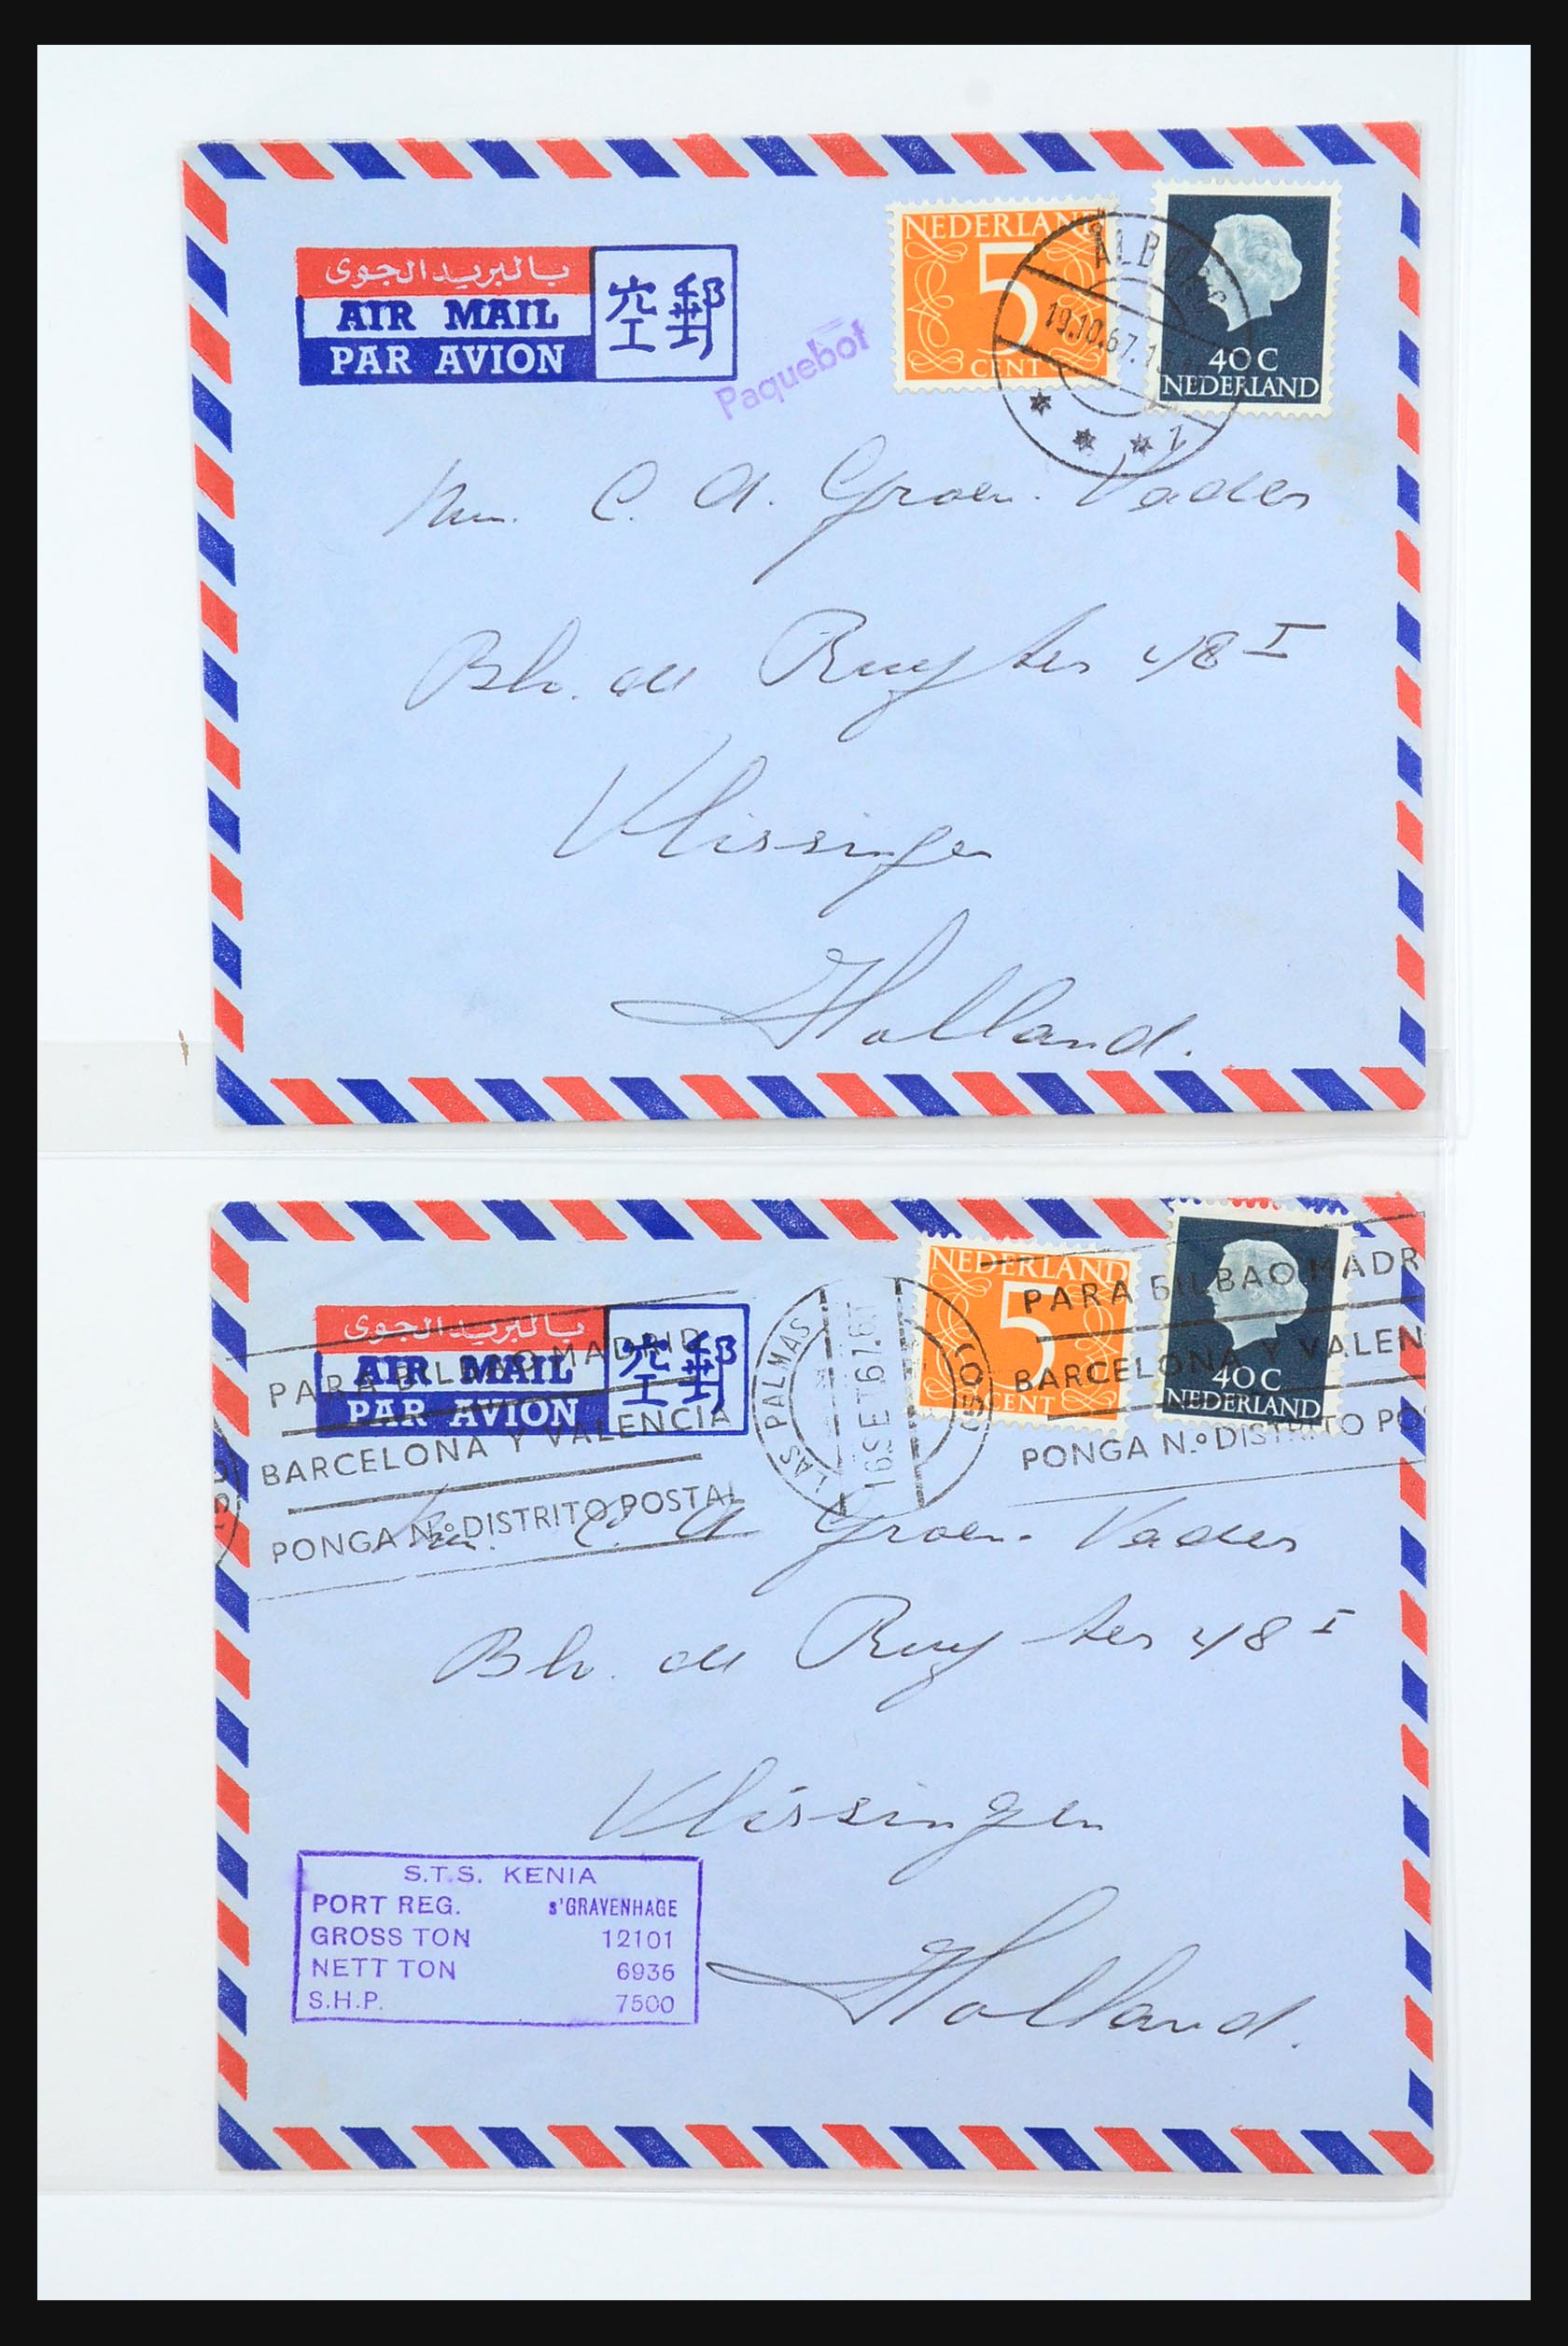 بالبريد الجوى
AIR MAIL
PAR AVION
空郵
Paquebot
NEDERLAND
5
CENT
40 C
NEDERLAND
ÅLBORG
19.10.67.1
1
C. A. Groen. Vader
Blv. de Ruyter 48 I
Vlissingen
Holland.
بالبريد الجوى
AIR MAIL
PAR AVION
空郵
PARA BILBAO MADRID
BARCELONA Y VALENCIA
PONGA N.º DISTRITO POSTAL
LAS PALMAS
16 SET 67
NEDERLAND
5
CENT
40 C
NEDERLAND
PARA BILBAO MADR
BARCELONA Y VALEN
PONGA N.º DISTRITO POS
C. A Groen. Vader
Blv. de Ruyter 48 I
Vlissingen
Holland.
S.T.S. KENIA
PORT REG. s'GRAVENHAGE
GROSS TON 12101
NETT TON 6936
S.H.P. 7500